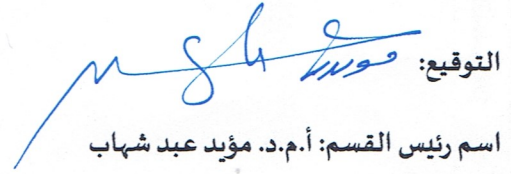 التوقيع:
اسم رئيس القسم: أ.م.د. مؤيد عبد شهاب